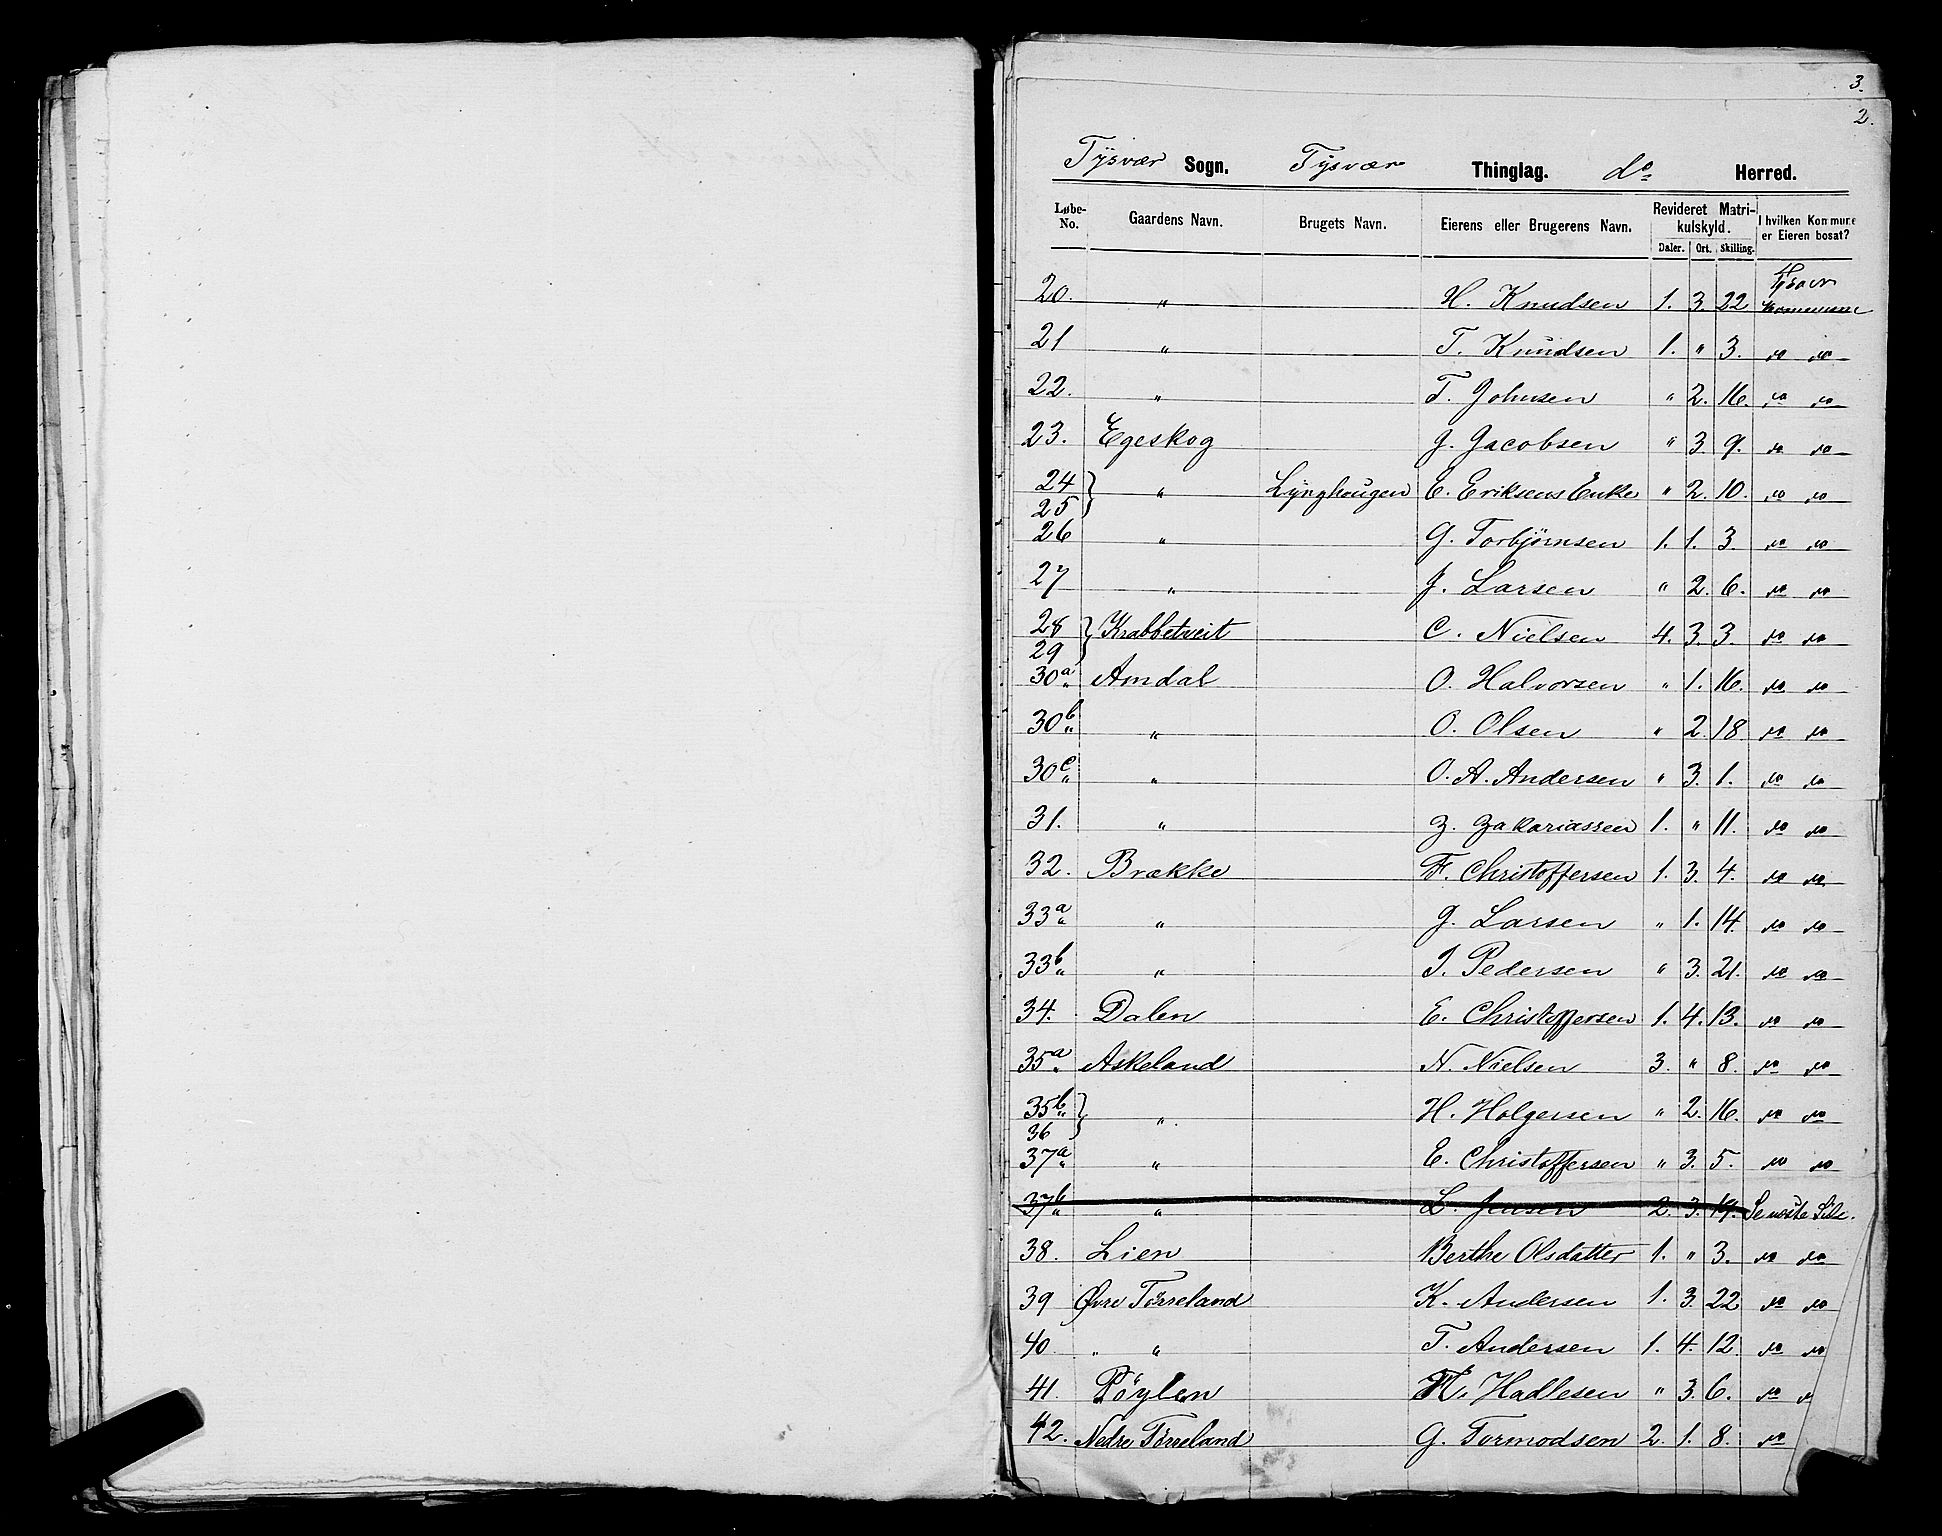 3.
2.
Tysvær Sogn. Tysvær Thinglag. do Herred.
Løbe-No. Gaardens Navn. Brugets Navn. Eierens eller Brugerens Navn. Revideret Matrikulskyld. I hvilken Kommune er Eieren bosat?
Daler. Ort. Skilling.
20. " H. Knudsen 1. 3. 22 Tysvær Kommune
21 " T. Knudsen 1. " 3. do do
22. " T. Johnsen " 2. 16. do do
23. Egeskog G. Jacobsen " 3 9. do do
24 25 } " Lynghougen E. Eriksens Enke " 2. 10. do do
26 " G. Torbjørnsen 1. 1. 3. do do
27 " J. Larsen " 2. 6. do do
28 29 } Krabbetveit C. Nielsen 4. 3. 3. do do
30a " Amdal O. Halvorsen " 1. 16. do do
30b " " O. Olsen " 2 18. do do
30c " " O. A. Andersen " 3. 1. do do
31. " Z. Zakariassen 1. " 11. do do
32. Brække F. Christoffersen 1. 3. 4. do do
33a " " G. Larsen " 1. 14. do do
33b " " I. Pedersen " 3. 21. do do
34. Dalen E. Christoffersen 1. 4. 13. do do
35a " Askeland N. Nielsen 3. " 8. do do
35b " 36 } " H. Holgersen " 2. 16. do do
37a " " E. Christoffersen " 3. 5. do do
37b " " L. Jensen 2. 3. 19. Se næste Side.
38. Lien Berthe Olsdatter 1. " 3. do do
39 Øvre Tørreland K. Andersen 1. 3. 22 do do
40 " " T. Andersen 1. 4. 12. do do
41. Pøylen Hadlesen " 3. 6. do
42. Nedre Tørreland G. Tormodsen 2. 1. 8. do